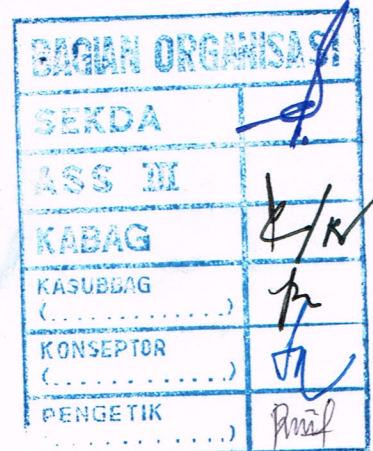 BAGIAN ORGANISASI
SEKDA
ASS III
KABAG
KASUBBAG
(.............)
KONSEPTOR
(.............)
PENGETIK
.............)